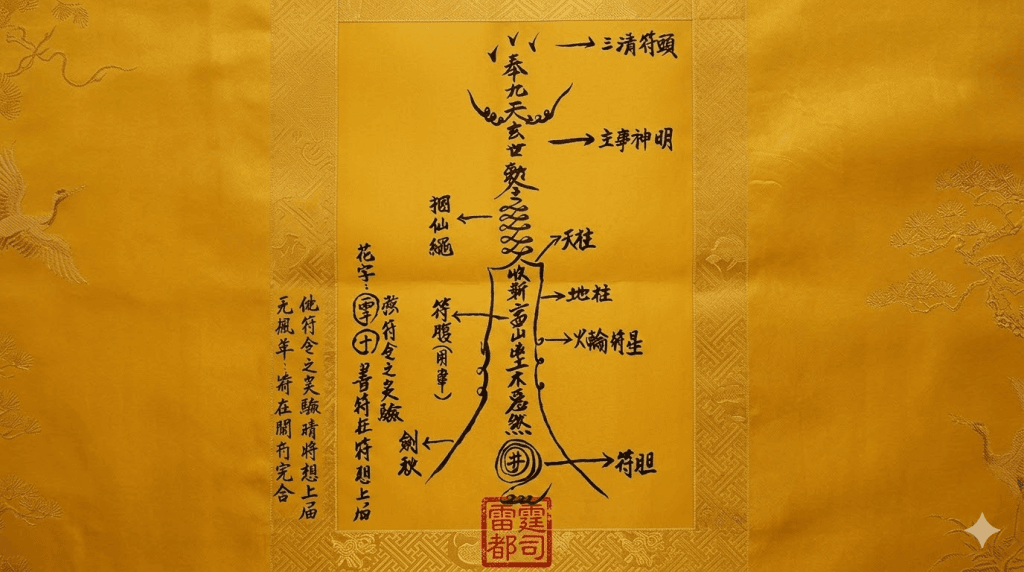 三清符頭
奉九天玄世勅令
主事神明
捆仙繩
天柱
地柱
收新
山
土木
然
符腹(用事)
火輪符星
劍秋
井
符胆
花字:
十
符令之
驗
善符在符想上屆
他符令之
驗晴將想上屆
无風年:
符在開
完合
雷霆都司